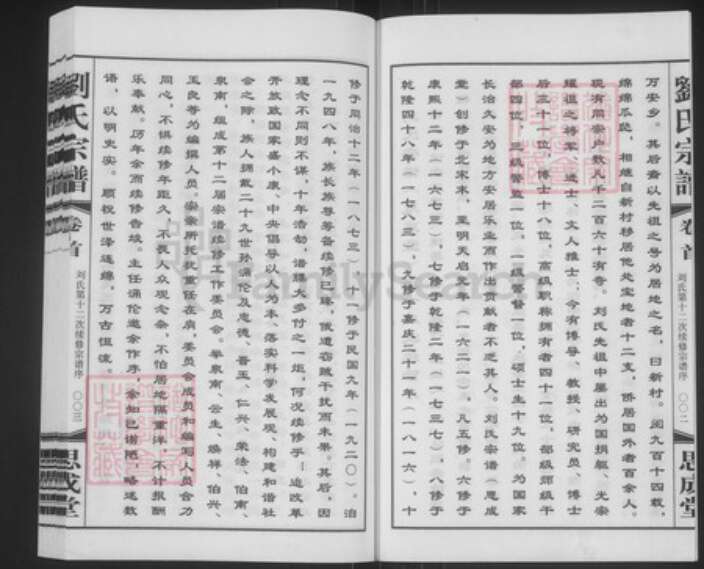 劉氏宗譜 卷首 刘氏第十二次续修宗谱序 〇〇二 思成堂
万安乡。其后裔以先祖之号为居地之名，曰新村。阅九百十四载，
绵绵瓜瓞，相继自新村移居他处定地者十二支，侨居国外者百余人。
现有同宗户数八千二百六十有奇。刘氏先祖中屡出为国捐躯、光宗
耀祖之将军、进士、文人雅士；今有博导、教授、研究员、博士
后三十一位，博士十八位，高级职称拥有者四十一位，部级郊级干
部四位，三级警监一位，一级警督一位，硕士生十九位。为国家
长治久安为地方安居乐业而作出贡献者不乏其人。刘氏宗谱（思成
堂）创修于北宋末，至明天启元年（一六二一），凡五修。六修于
康熙十二年（一六七三），七修于乾隆二年（一七三七），八修于
乾隆四十八年（一七八三），九修于嘉庆二十一年（一八一六），十
修于同治十二年（一八七三），十一修于民国九年（一九二〇）。洎
一九四八年，族长族尊筹备续修已臻，俄遭窃贼干扰而未果。其后，因
理念不同则不谋，十年浩劫，谱牒大多付之一炬，何况续修乎！迨改革
开放致国家嘉小康、中央倡导以人为本、落实科学发展观、构建和谐社
会之际，族人拥戴二十九世孙涌伦及忠德、晋玉、仁兴、荣法、伯南、
泉南，组成第十二届宗谱续修工作委员会。举泉南、云生、焕祥、伯兴、
玉良等为编撰人员。宗亲所托祝重任在肩，委员会成员和编写人员合力
同心，不惧续修年距久，不畏人众观念杂，不怕居地隔重洋，不计报酬
乐奉献。历年余而续修告竣。主任涌伦邀余作序，余知己谫陋，略述数
语，以明史实。顺祝世泽连绵，万古恒流。
劉氏宗譜 卷首 刘氏第十二次续修宗谱序 〇〇三 思成堂
FamilySearch